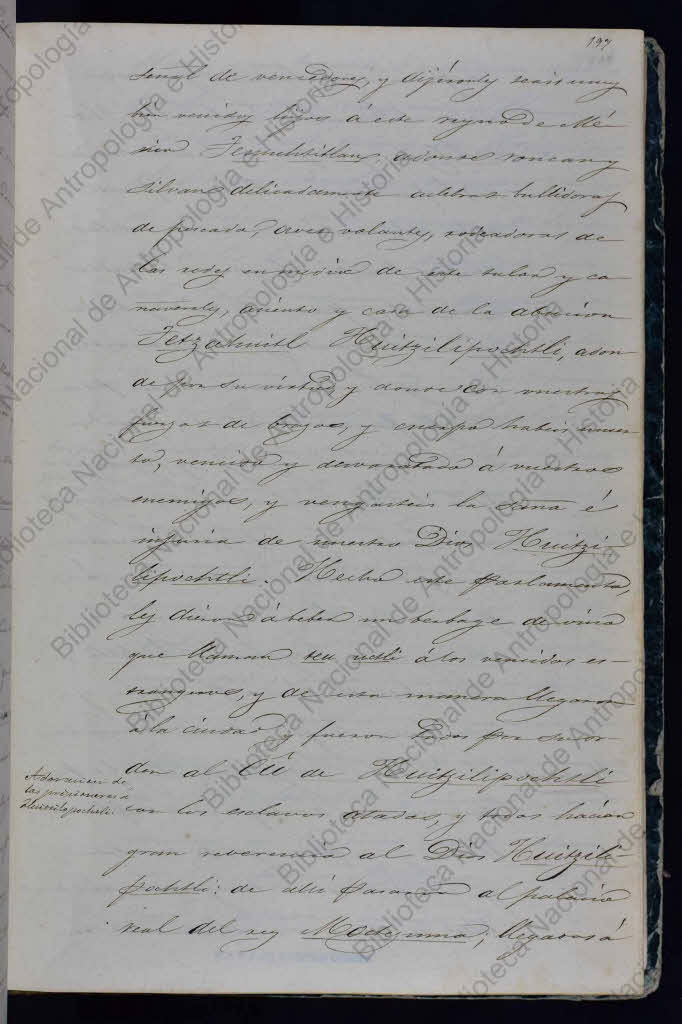 197
señal de vencedores, y dijéronles seais muy
bien venidos hijos á este reyno de Mé-
xico Tenuchtitlan, adonde roncan y
silvan delicadamente culebras bullidoras
de pescado, aves volantes, rodeadoras de
las redes en medio de este tular y ca-
ñaverales, asiento y casa de la abucion
Tetzahuitl Huitzilipochtli, adon-
de por su virtud, y donde con vuestras
fuerzas de brazos, y cuerpo habeis muer-
to, vencido y desvaratado á vuestros
enemigos, y vengasteis la saña é
injuria de nuestro Dios Huitzi
lipochtli. Hecho este Parlamento,
les dieron á beber un brebage de vino
que llaman teu uctli á los vencidos es-
trangeros, y de esta manera llegaron
á la ciudad y fueron todos por su or-
den al Cú de Huitzilipochtli
con los esclavos atados, y todos hacian
gran reverencia al Dios Huitzili-
pochtli: de alli pasaron al palacio
real del rey Moctezuma, llegados á
Adoracion de
los prisioneros a
Huitzilopochtli.
Biblioteca Nacional de Antropología e Historia